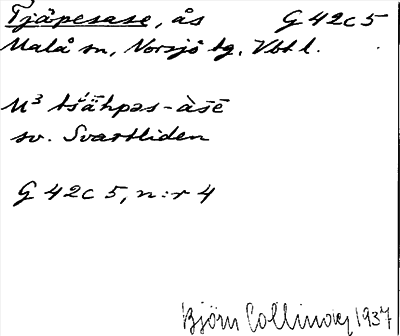 Tjäpesase, ås G 42c5
Malå sn, Norsjö tg, Vbtl.
sv. Svartliden
G 42c5, n:r 4
Björn Collinder 1937